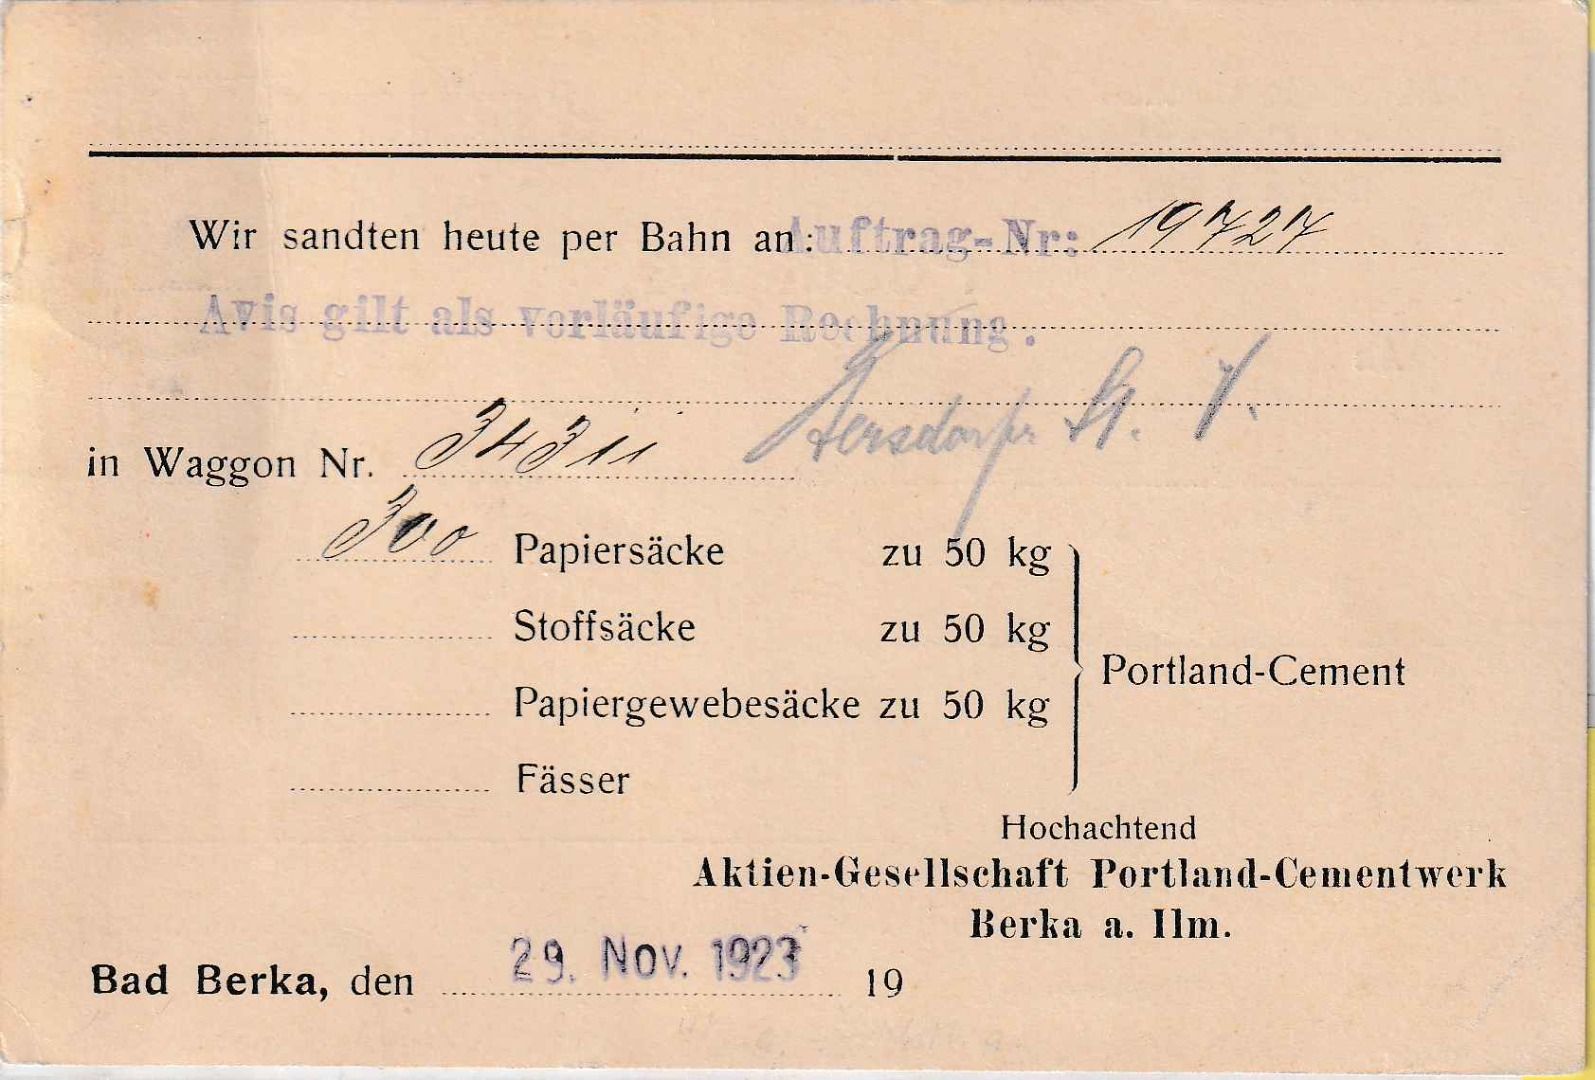 Wir sandten heute per Bahn an: Auftrag-Nr: 19727
Avis gilt als vorläufige Rechnung.
in Waggon Nr. 34311
300 Papiersäcke zu 50 kg
Stoffsäcke zu 50 kg
Portland-Cement
Papiergewebesäcke zu 50 kg
Fässer
Hochachtend
Aktien-Gesellschaft Portland-Cementwerk
Berka a. Ilm.
Bad Berka, den 29. Nov. 1923 19